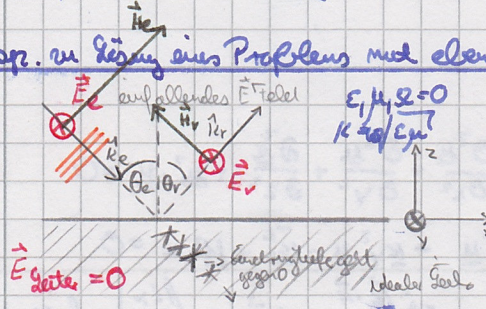 H⃗e
zu Lösung eines Problems mit eben
E⃗e
einfallendes E⃗-Feld
H⃗r
k̂r
ε, μ, Ω=0
k=ω√εμ
k̂e
E⃗r
θe θr
z
y
E⃗Leiter = 0
Eindringtiefe geht
gegen 0
idealer